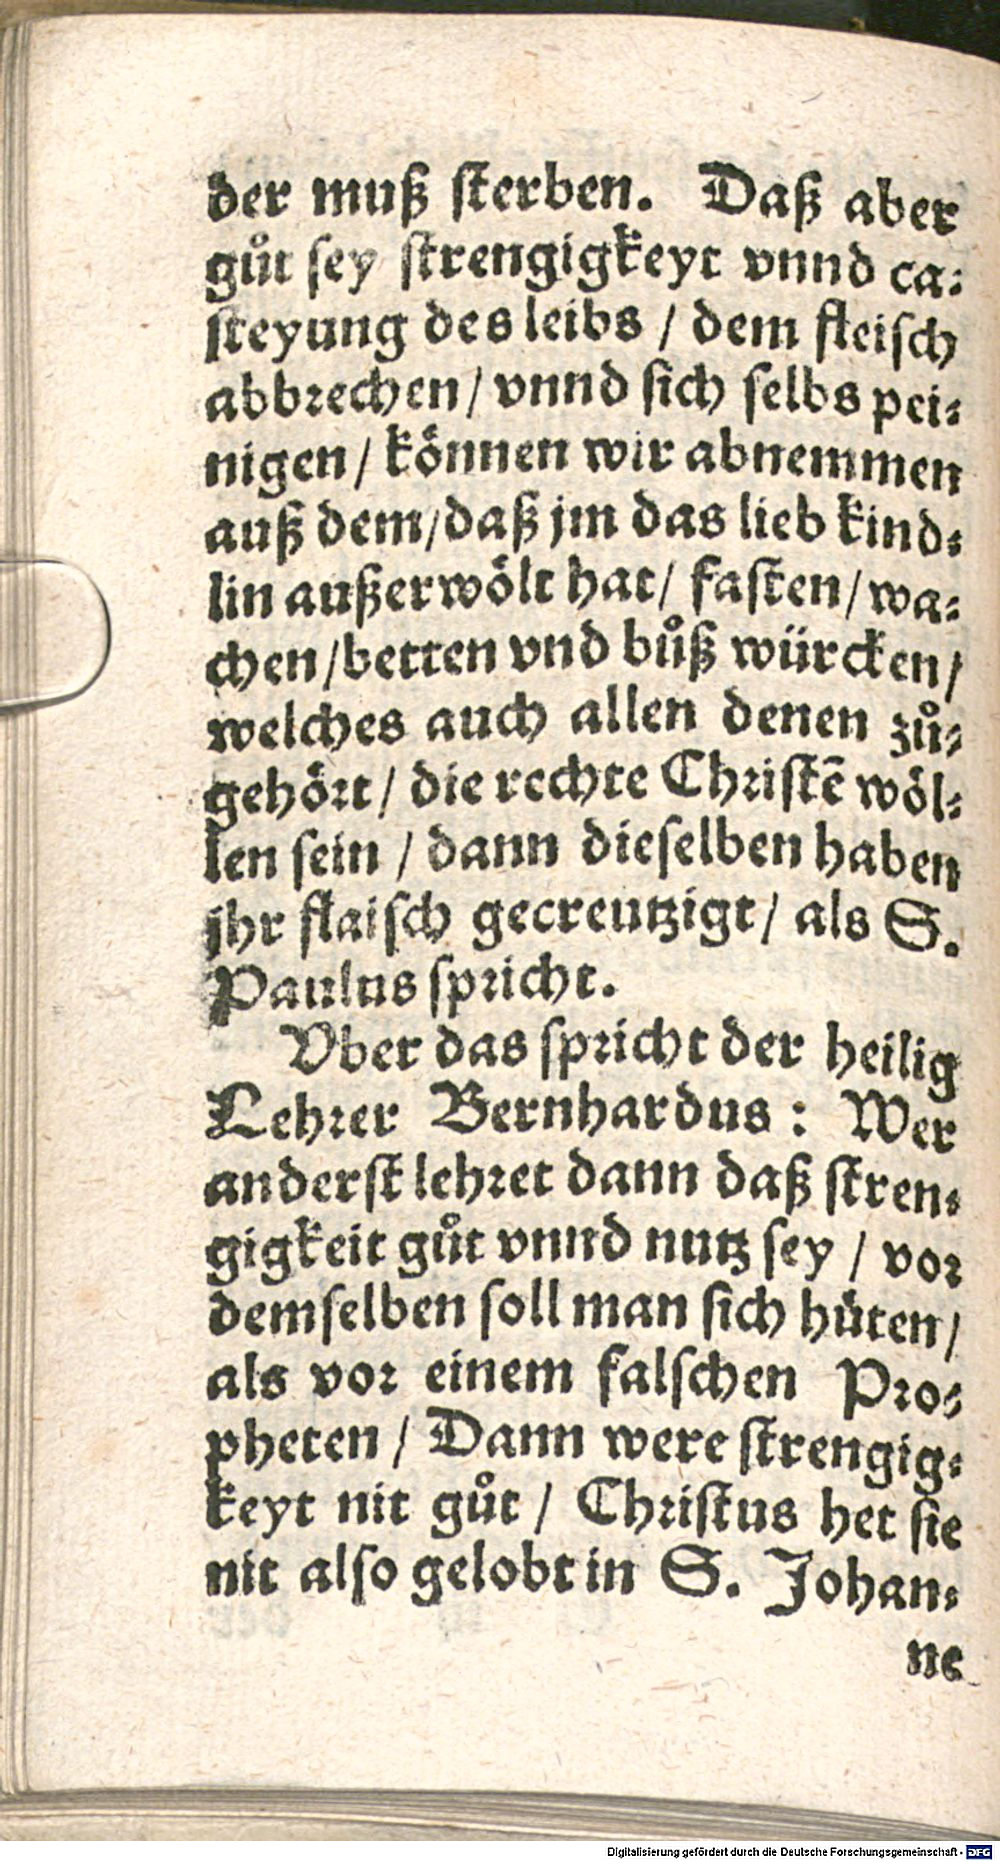 der muß ſterben. Daß aber
gůt ſey ſtrengigkeyt vnnd ca⸗
ſteyung des leibs / dem fleiſch
abbrechen / vnnd ſich ſelbs pei⸗
nigen / können wir abnemmen
auß dem / daß jm das lieb kind⸗
lin außerwölt hat / faſten / wa⸗
chen / betten vnd bůß würcken /
welches auch allen denen zů⸗
gehört / die rechte Chriſtē wöl⸗
len ſein / dann dieſelben haben
jhr flaiſch gecreutzigt / als S.
Paulus ſpricht.
Vber das ſpricht der heilig
Lehrer Bernhardus : Wer
anderſt lehret dann daß ſtren⸗
gigkeit gůt vnnd nutz ſey / vor
demſelben ſoll man ſich hüten /
als vor einem falſchen Pro⸗
pheten / Dann were ſtrengig⸗
keyt nit gůt / Chriſtus het ſie
nit alſo gelobt in S. Johan⸗
ne
Digitalisierung gefördert durch die Deutsche Forschungsgemeinschaft - DFG